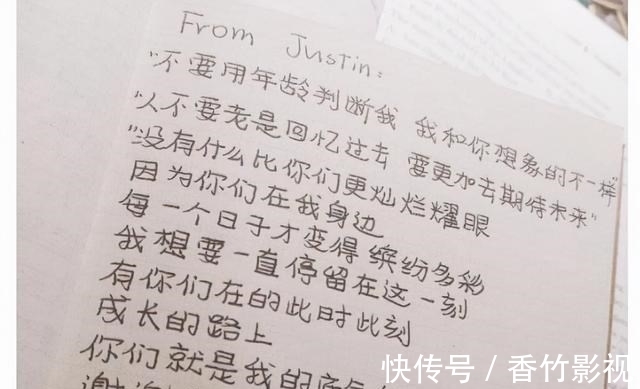 From Justin:
"不要用年龄判断我 我和你想象的不一样"
"人不要老是回忆过去 要更加去期待未来"
"没有什么比你们更灿烂耀眼
因为你们在我身边
每一个日子才变得缤纷多彩
我想要一直停留在这一刻
有你们在的此时此刻
成长的路上
你们就是我的底气
谢谢
快传号 / 香竹影视